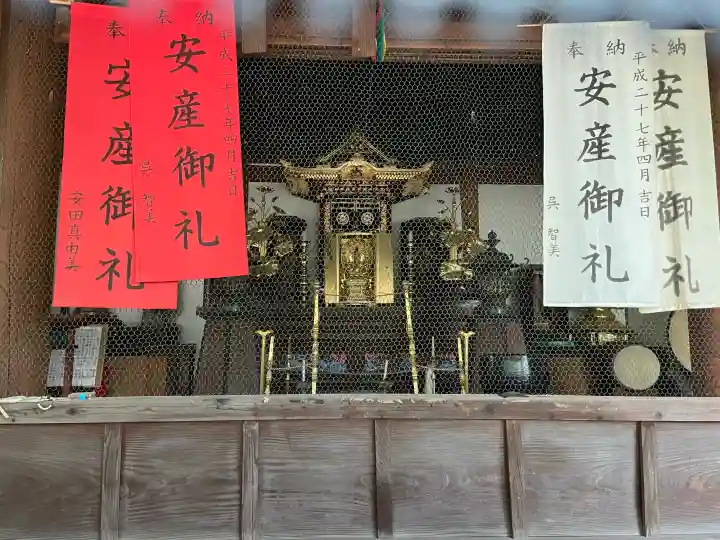 奉納
安産御礼
安田真由美
奉納
平成二十七年四月吉日
安産御礼
呉智美
奉納
平成二十七年四月吉日
安産御礼
呉智美
奉納
安産御礼